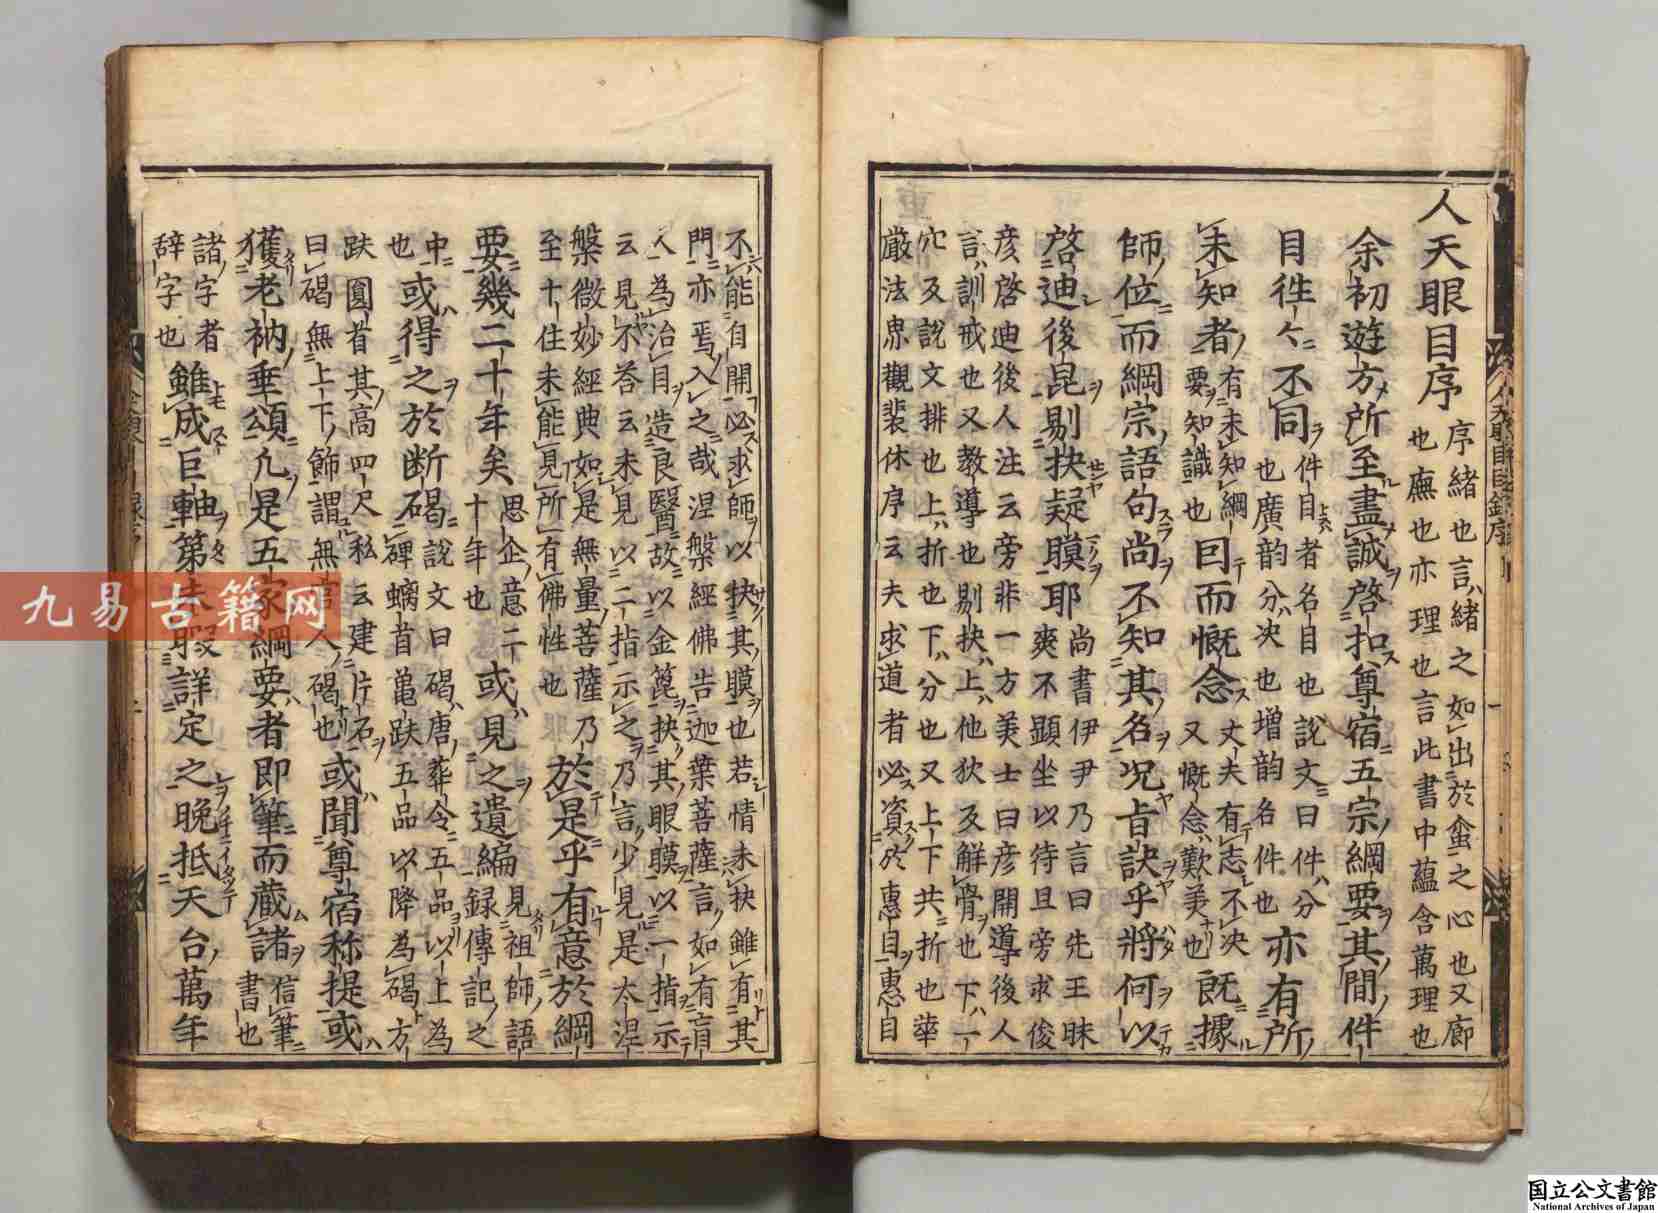 人天眼目序 序緒也言緒之如出於蠒之心也又廊
也廡也亦理也言此書中蘊含萬理也
余初遊方所至盡誠啓扣尊宿五宗綱要其間件
目徃〻不同 件目者名目也説文曰件分
也廣韵分决也増韵名件也 亦有所
未知者 有未知綱
要知識也 囙而慨念 丈夫有志不决
又慨念歎美也 既據
師位而綱宗語句尚不知其名况旨訣乎將何以
啓迪後昆剔抉疑膜耶 尚書伊尹乃言曰先王昧
爽不顯坐以待旦旁求俊
彦啓迪後人注云旁非一方美士曰彦開導後人
言訓戒也又教導也剔抉上他狄及解骨也下一
穴及説文排也上折也下分也又上下共折也華
嚴法界觀裴休序云夫求道者必資於惠目惠目
不能自開必求師以抉其膜也若情未抉雖有其
門亦焉入之哉涅槃經佛告迦葉菩薩言如有盲
人為治目造良醫故以金箆抉其眼膜以一指示
云見不答云未見以二指示之乃言少見是大涅
槃微妙經典如是無量菩薩乃
至十住未能見所有佛性也 於是乎有意於綱
要幾二十年矣 思企意二
十年也 或見之遺編 見祖師語
録傳記之
中或得之於断碣 説文曰碣唐葬令五品以上為
碑螭首亀趺五品以降為碣方
趺圓首其高四尺私云建片石
曰碣無上下飾謂無官人碣也 或聞尊宿称提或
獲老衲垂頌凢是五家綱要者即筆而蔵諸 信筆
書也
諸字者
辞字也 雖成巨軸第未暇詳定之晩抵天台萬年
九易古籍网
国立公文書館
National Archives of Japan